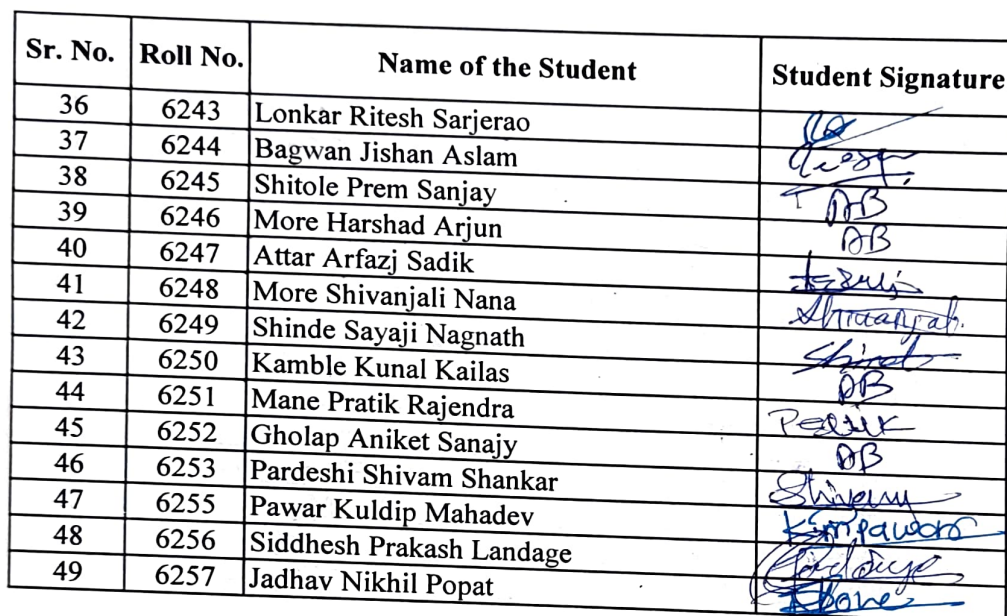 Sr. No. Roll No. Name of the Student Student Signature
36 6243 Lonkar Ritesh Sarjerao
37 6244 Bagwan Jishan Aslam
38 6245 Shitole Prem Sanjay AB
39 6246 More Harshad Arjun AB
40 6247 Attar Arfazj Sadik
41 6248 More Shivanjali Nana
42 6249 Shinde Sayaji Nagnath
43 6250 Kamble Kunal Kailas AB
44 6251 Mane Pratik Rajendra
45 6252 Gholap Aniket Sanajy AB
46 6253 Pardeshi Shivam Shankar
47 6255 Pawar Kuldip Mahadev
48 6256 Siddhesh Prakash Landage
49 6257 Jadhav Nikhil Popat